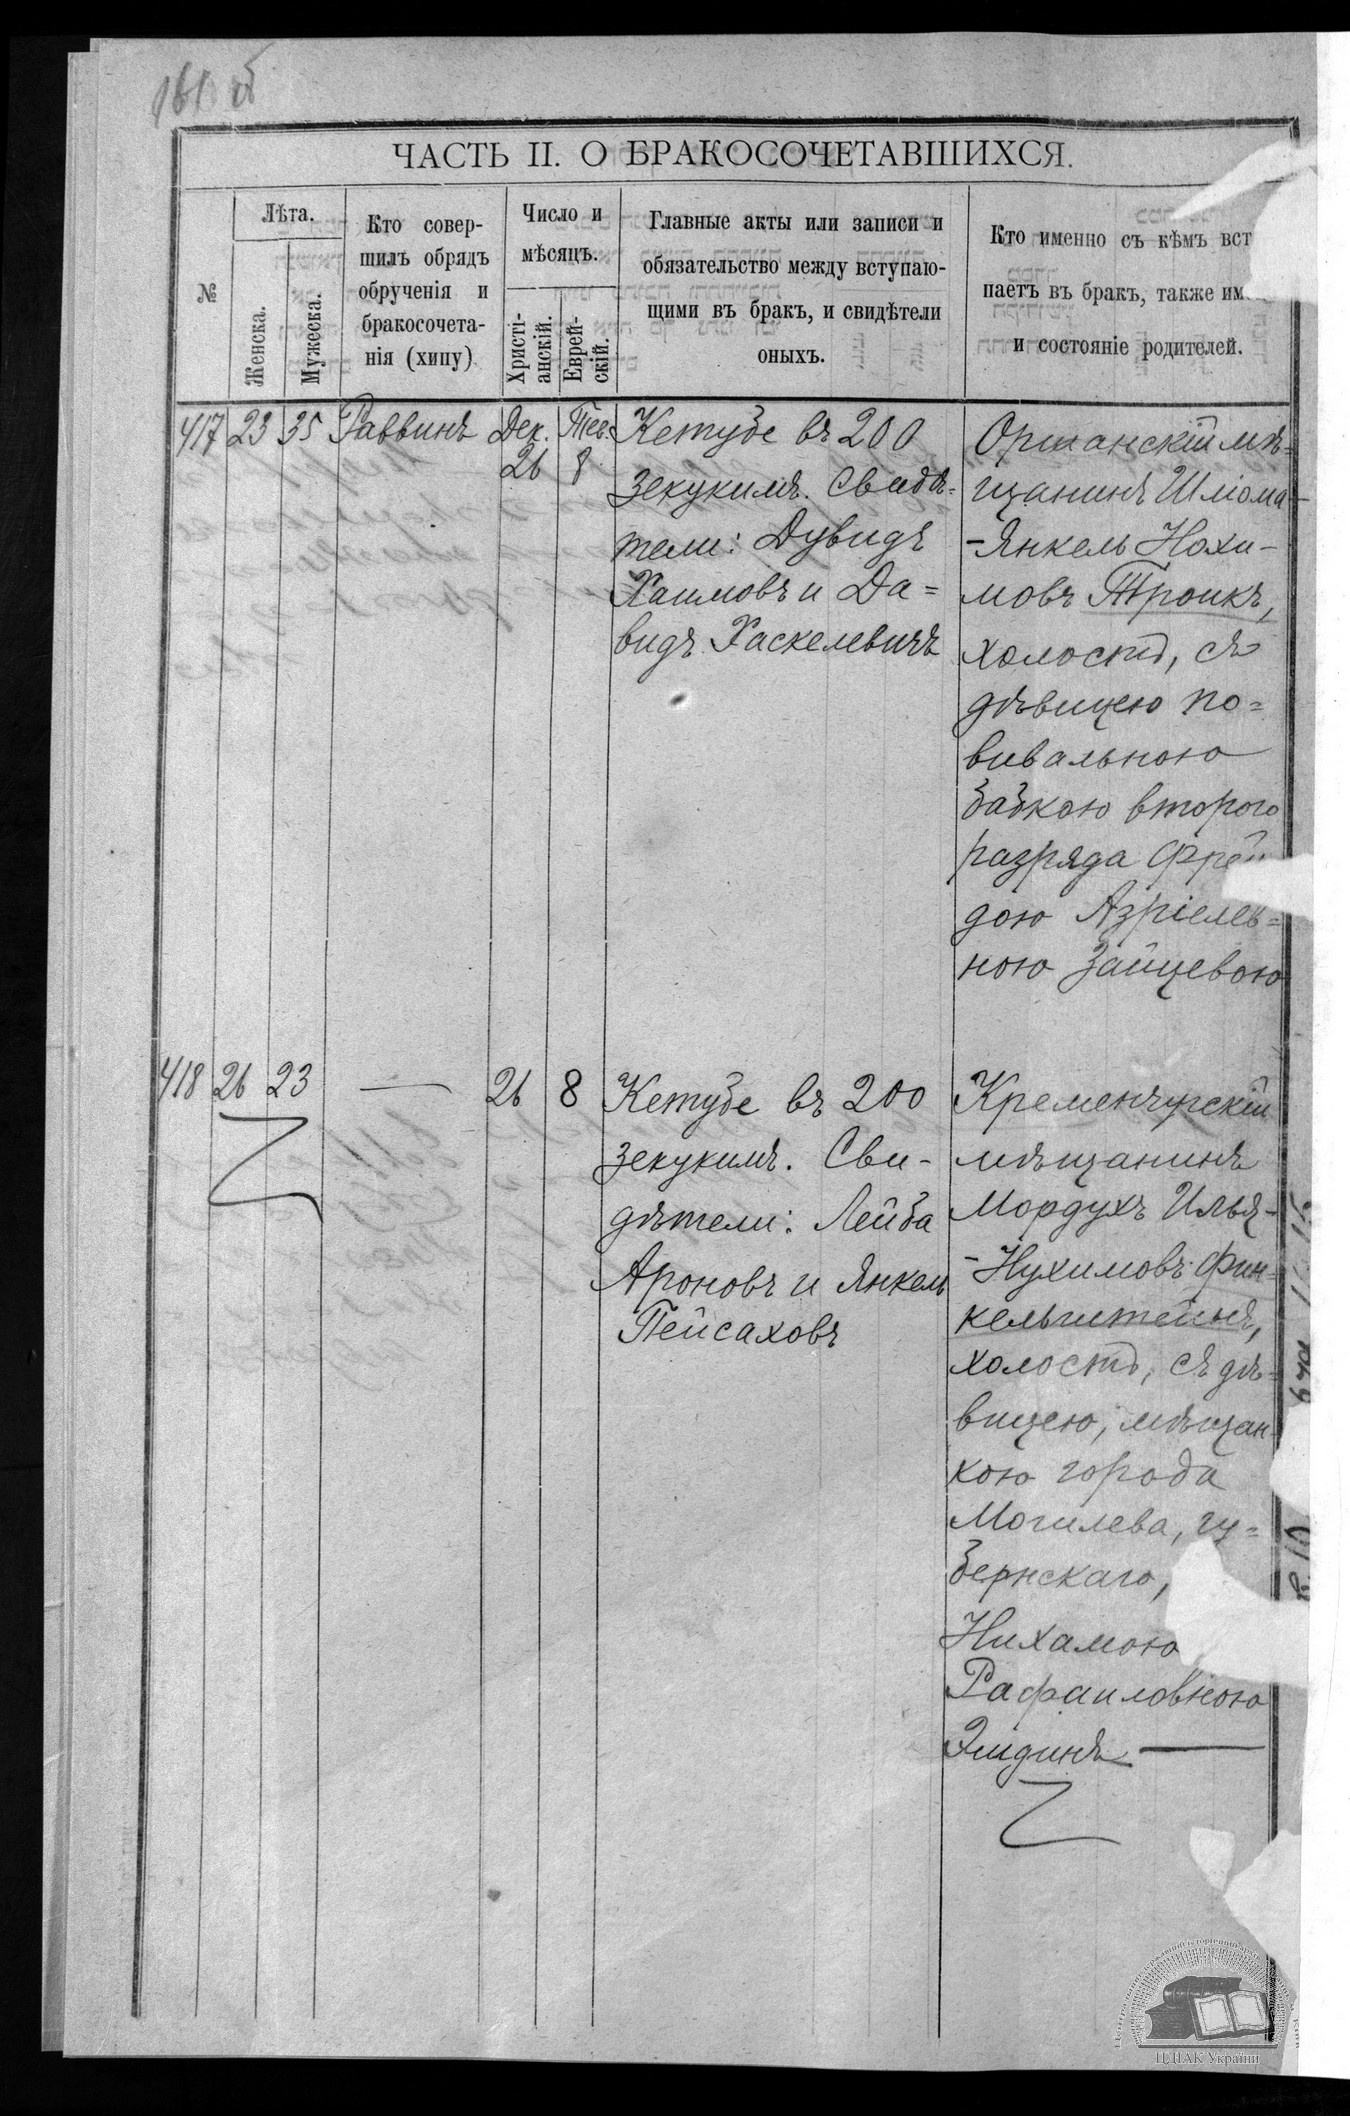 ЧАСТЬ II. О БРАКОСОЧЕТАВШИХСЯ.
№
Лѣта.
Женска.
Мужеска.
Кто совер-
шилъ обрядъ
обрученія и
бракосочета-
нія (хипу)
Число и
мѣсяцъ.
Христі-
анскій.
Еврей-
скій.
Главные акты или записи и
обязательство между вступаю-
щими въ бракъ, и свидѣтели
оныхъ.
Кто именно съ кѣмъ вст
паетъ въ бракъ, также им
и состояніе родителей.
417 23 35 Раввинъ Дек. 26 Тев. 8
Кетубе въ 200
зекукимъ. Свидѣ=
тели: Дувидъ
Хаимовъ и Да=
видъ Хаскелевичъ
Оршанскій мѣ=
щанинъ Шлома-
-Янкель Нохи-
мовъ Троикъ,
холостъ, съ
дѣвицею по=
вивальною
бабкою второго
разряда Фрей
дою Азріелев=
ною Зайцевою
418 26 23 — 26 8
Кетубе въ 200
зекукимъ. Сви-
дѣтели: Лейба
Ароновъ и Янкель
Пейсаховъ
Кременчугскій
мѣщанинъ
Мордухъ Илья-
-Нухимовъ Фин=
кельштейнъ,
холостъ, съ дѣ=
вицею, мѣщан-
кою города
Могилева, гу=
бернскаго,
Нихамою
Рафаиловною
Эйдинъ —
ЦДІАК України